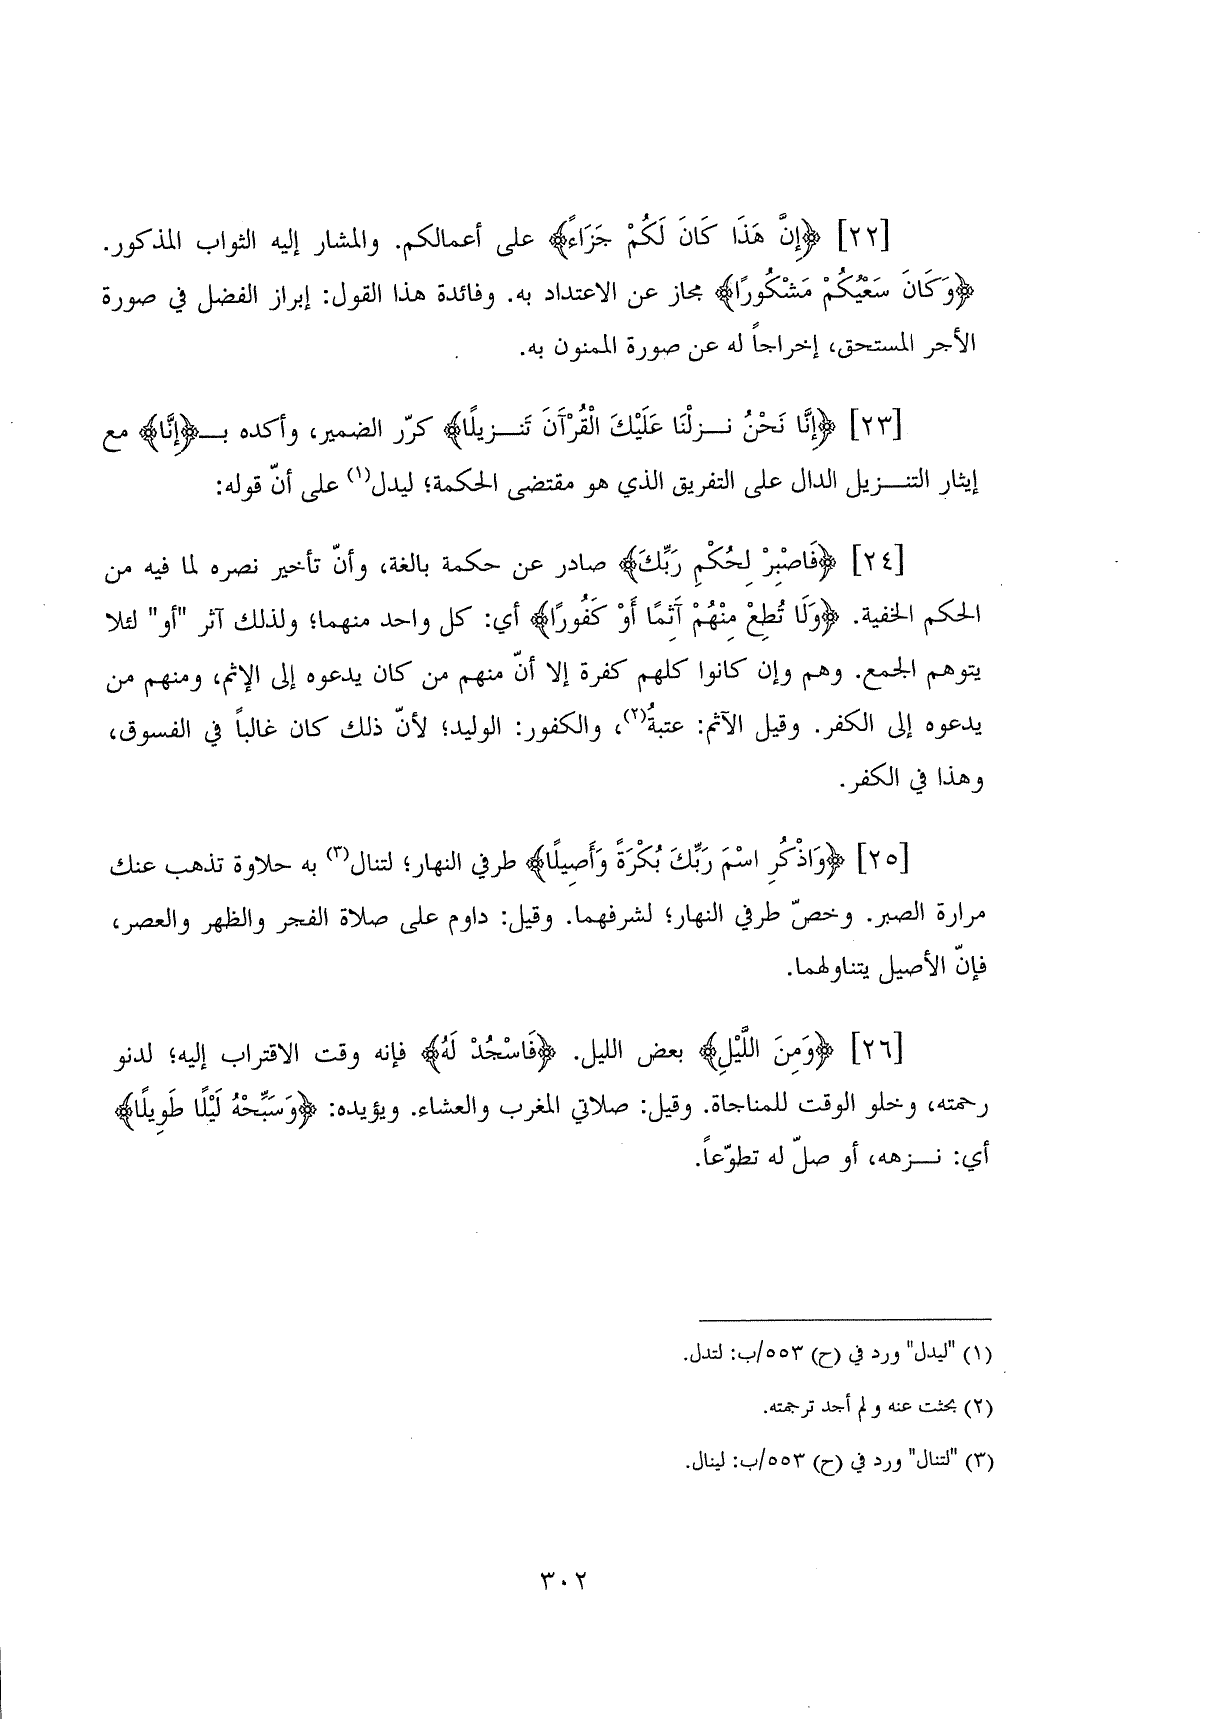 [٢٢] ﴿إِنَّ هَذَا كَانَ لَكُمْ جَزَاءً﴾ على أعمالكم. والمشار إليه الثواب المذكور.
﴿وَكَانَ سَعْيُكُمْ مَشْكُورًا﴾ مجاز عن الاعتداد به. وفائدة هذا القول: إبراز الفضل في صورة
الأجر المستحق، إخراجاً له عن صورة الممنون به.
[٢٣] ﴿إِنَّا نَحْنُ نَزَّلْنَا عَلَيْكَ الْقُرْآنَ تَنْزِيلًا﴾ كرّر الضمير، وأكده بـ﴿إِنَّا﴾ مع
إيثار التنزيل الدال على التفريق الذي هو مقتضى الحكمة؛ ليدل(١) على أنّ قوله:
[٢٤] ﴿فَاصْبِرْ لِحُكْمِ رَبِّكَ﴾ صادر عن حكمة بالغة، وأنّ تأخير نصره لما فيه من
الحكم الخفية. ﴿وَلَا تُطِعْ مِنْهُمْ آثِمًا أَوْ كَفُورًا﴾ أي: كل واحد منهما؛ ولذلك آثر "أو" لئلا
يتوهم الجمع. وهم وإن كانوا كلهم كفرة إلا أنّ منهم من كان يدعوه إلى الإثم، ومنهم من
يدعوه إلى الكفر. وقيل الآثم: عتبةُ(٢)، والكفور: الوليد؛ لأنّ ذلك كان غالباً في الفسوق،
وهذا في الكفر.
[٢٥] ﴿وَاذْكُرِ اسْمَ رَبِّكَ بُكْرَةً وَأَصِيلًا﴾ طرفي النهار؛ لتنال(٣) به حلاوة تذهب عنك
مرارة الصبر. وخصّ طرفي النهار؛ لشرفهما. وقيل: داوم على صلاة الفجر والظهر والعصر،
فإنّ الأصيل يتناولهما.
[٢٦] ﴿وَمِنَ اللَّيْلِ﴾ بعض الليل. ﴿فَاسْجُدْ لَهُ﴾ فإنه وقت الاقتراب إليه؛ لدنو
رحمته، وخلو الوقت للمناجاة. وقيل: صلاتي المغرب والعشاء. ويؤيده: ﴿وَسَبِّحْهُ لَيْلًا طَوِيلًا﴾
أي: نزهه، أو صلّ له تطوّعاً.
(١) "ليدل" ورد في (ح) ٥٥٣/ب: لتدل.
(٢) بحثت عنه و لم أجد ترجمته.
(٣) "لتنال" ورد في (ح) ٥٥٣/ب: لينال.
٣٠٢